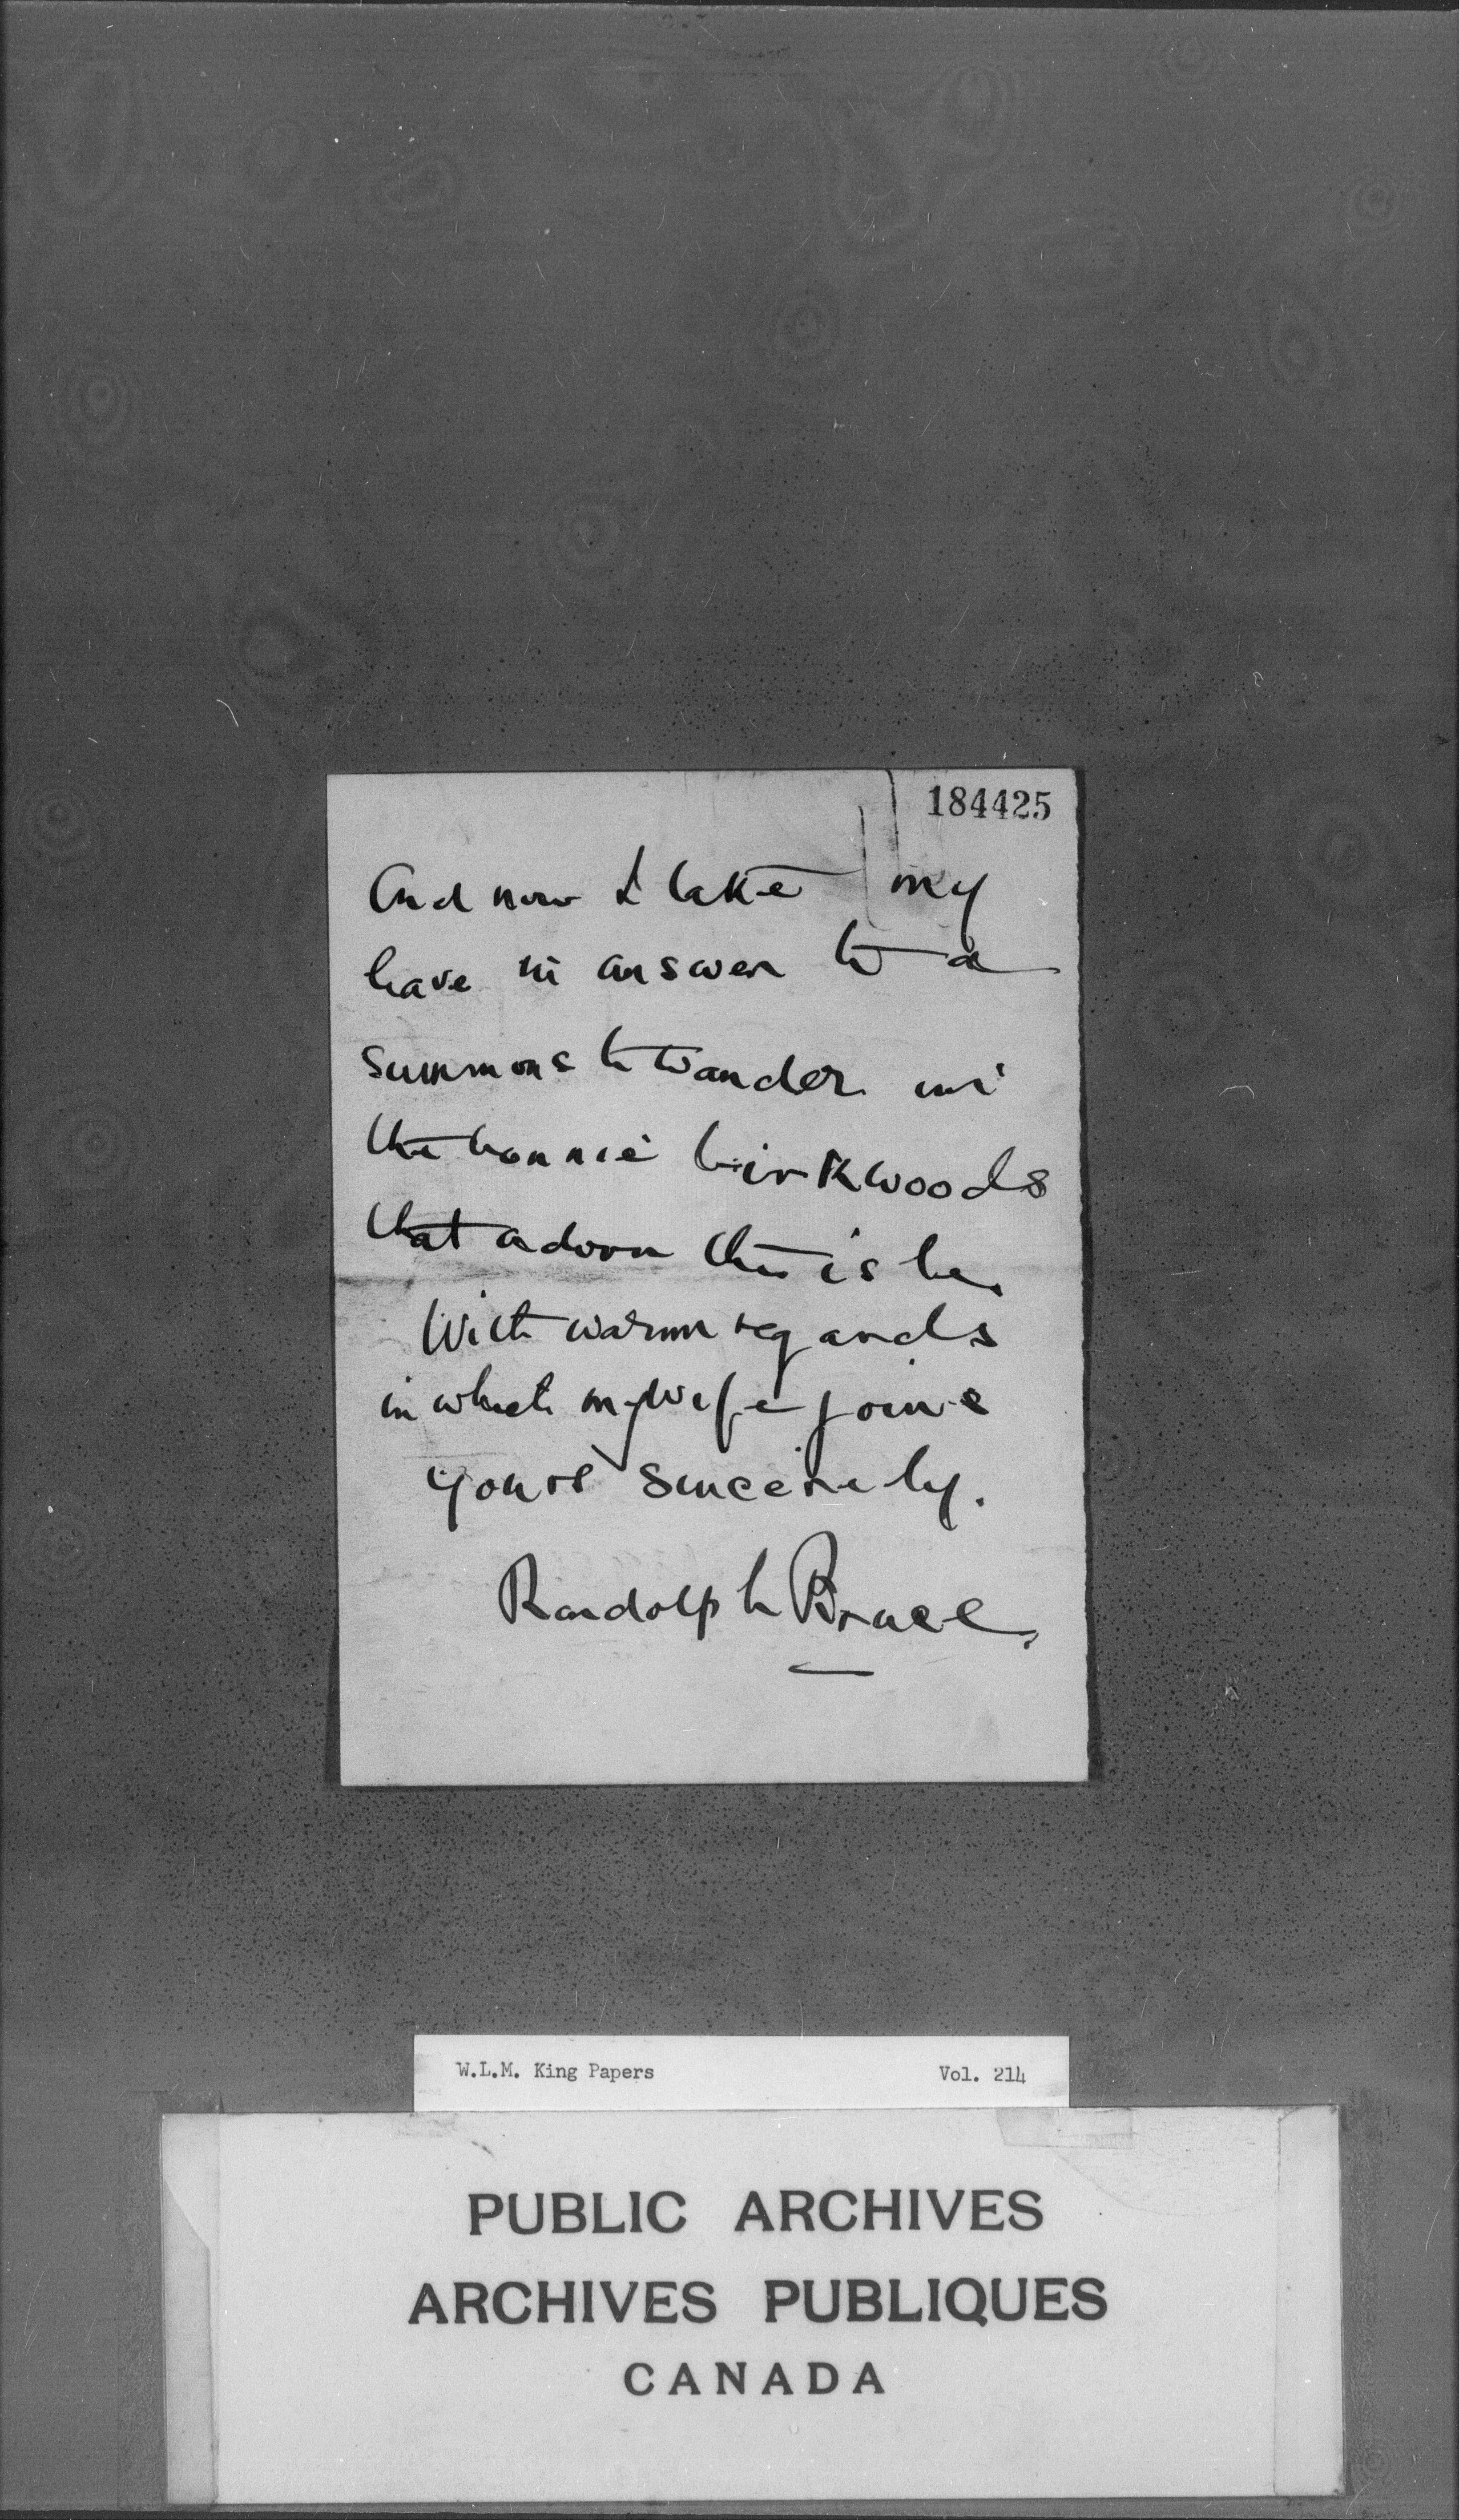 184425
And now I take my
leave in answer to a
summons to wander in
the bonnie birkwoods
that adorn this isle.
With warm regards
in which my wife joins
yours sincerely.
Randolph Bruce.
W.L.M. King Papers Vol. 214
PUBLIC ARCHIVES
ARCHIVES PUBLIQUES
CANADA